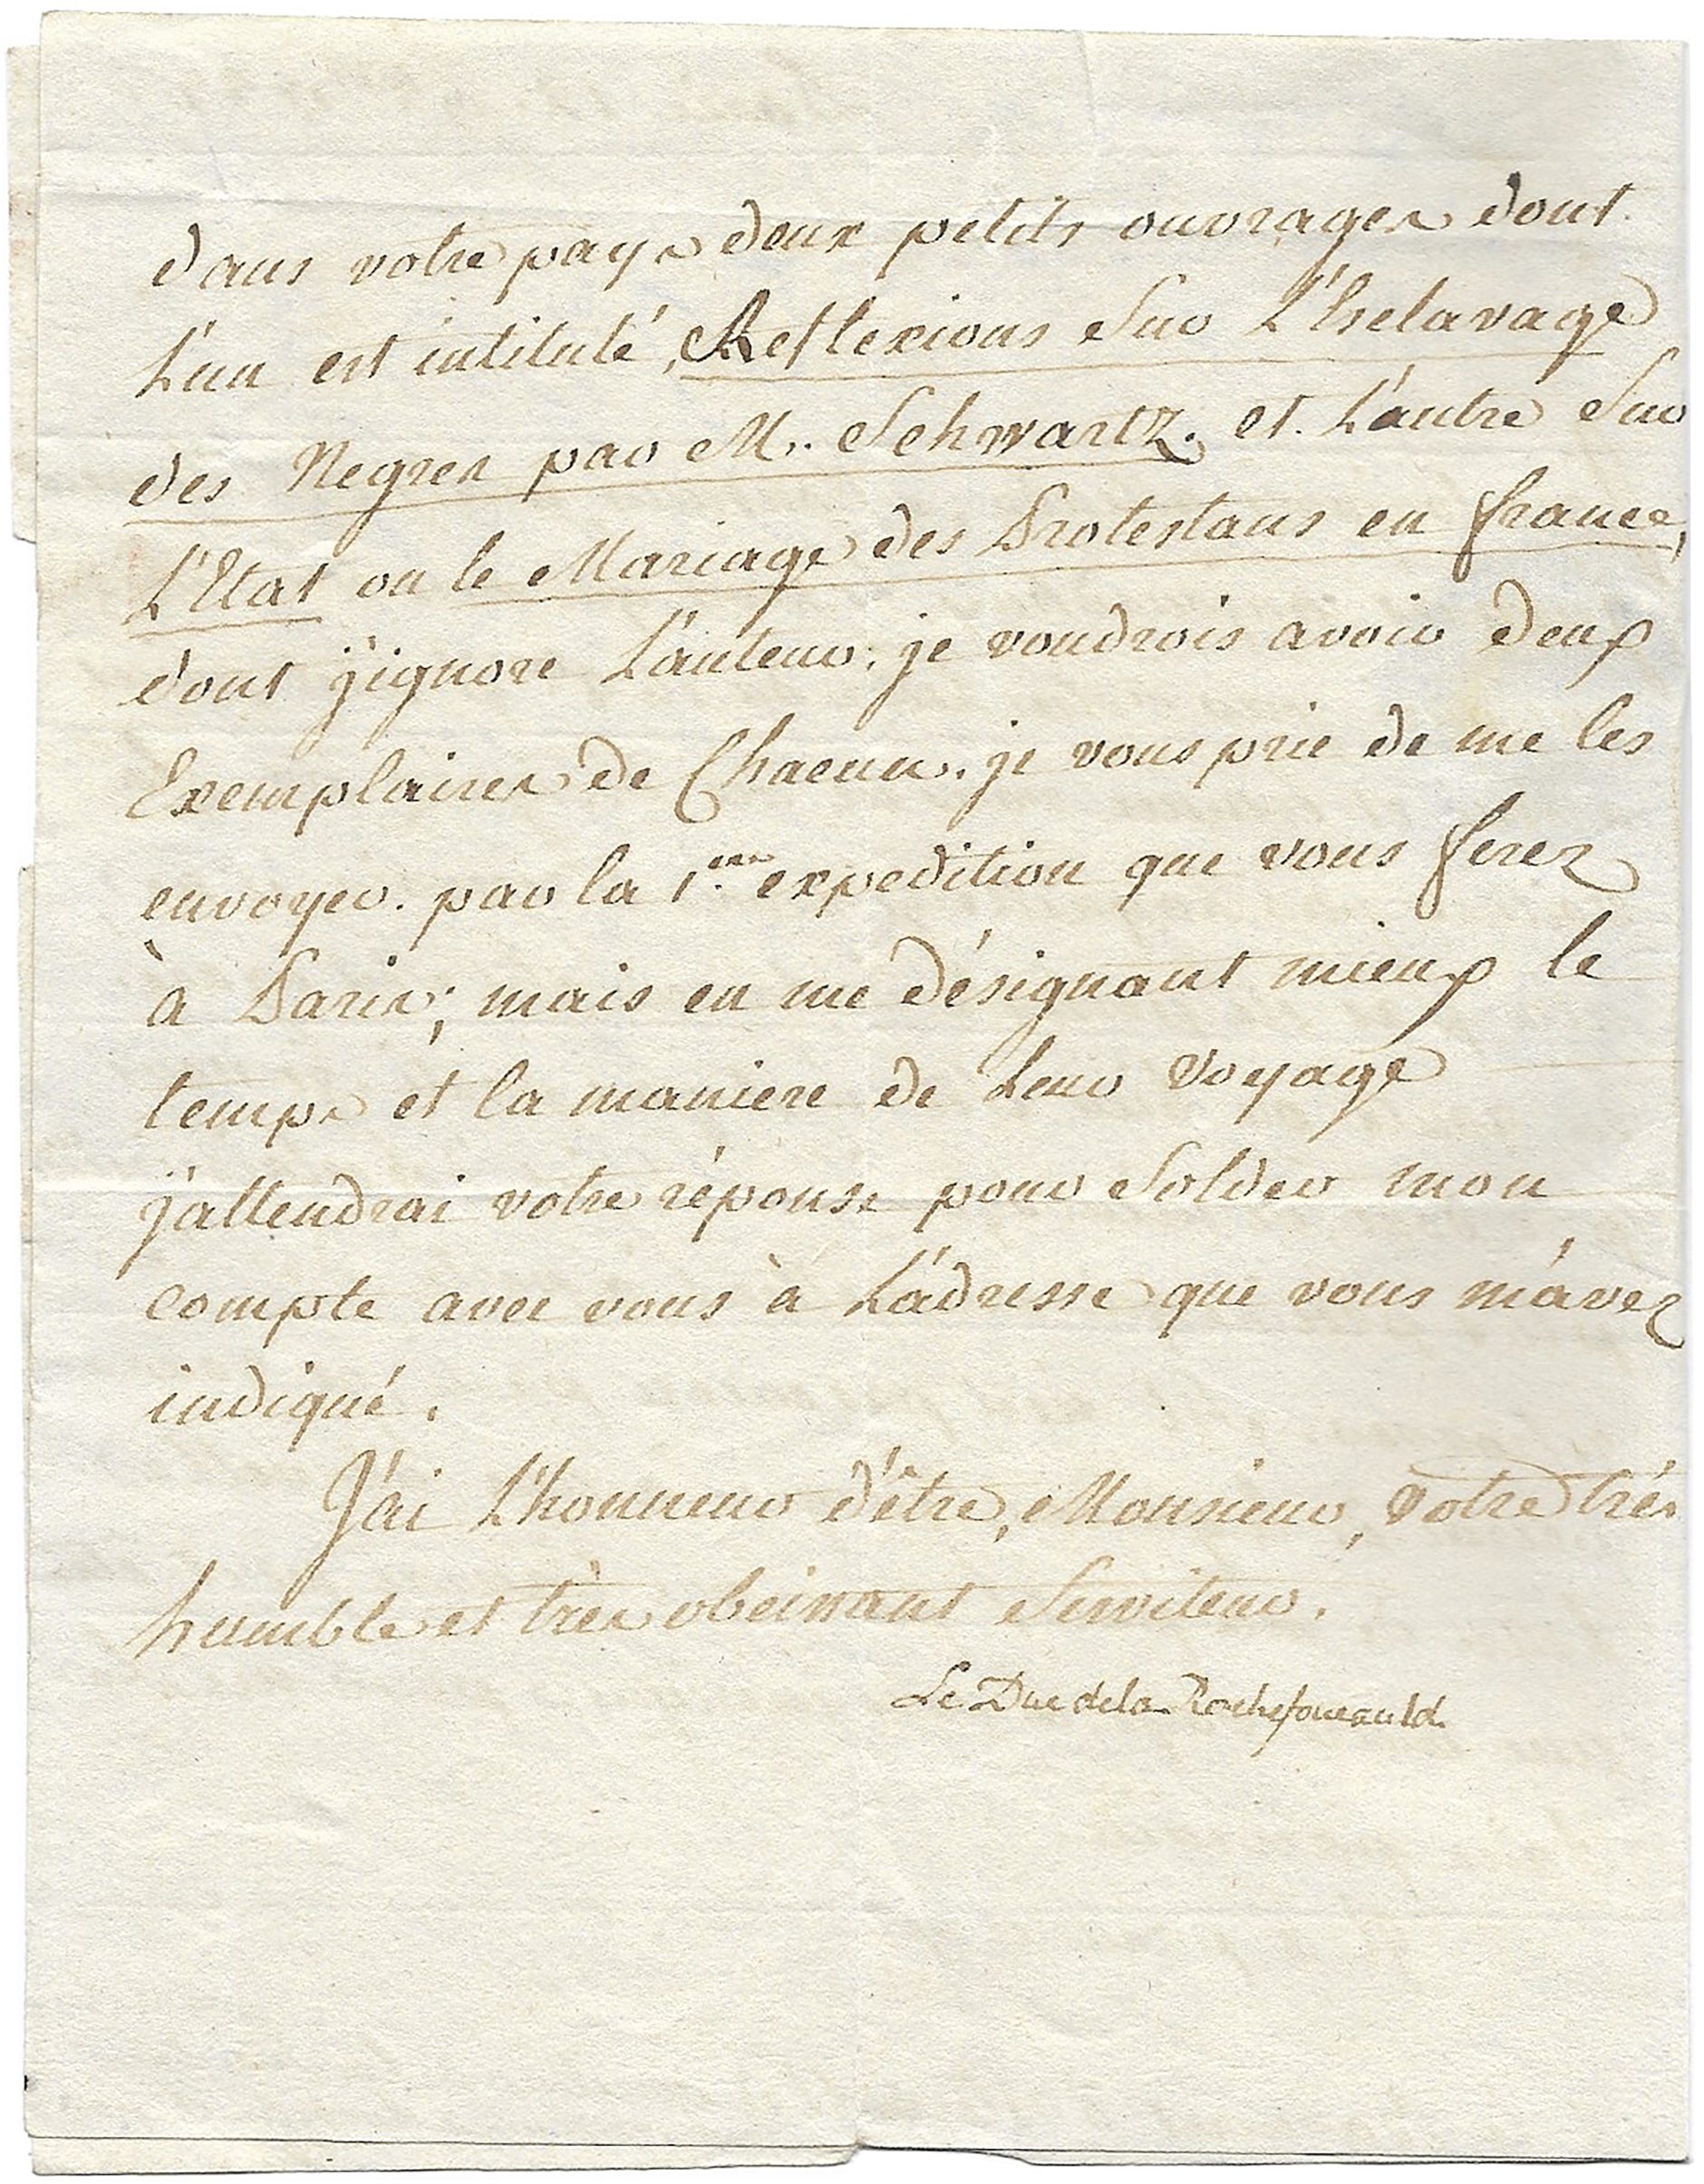 dans votre pays deux petits ouvrages dont
L'un est intitulé, Reflexions Sur L'Esclavage
des Negres par M. Schwartz. et L'autre Sur
L'Etat ou le Mariage des Protestans en france,
dont j'ignore L'auteur. je voudrois avoir deux
Exemplaires de Chacun. je vous prie de me les
envoyer. par la 1.ere expedition que vous ferez
à Paris; mais en me désignant mieux le
temps et la maniere de Leur voyage
j'attendrai votre réponse pour Solder mon
compte avec vous à L'adresse que vous m'avez
indiqué.
J'ai L'honneur d'être, Monsieur, votre trés
humble et très obeissant Serviteur.
Le Duc de la Rochefoucauld.